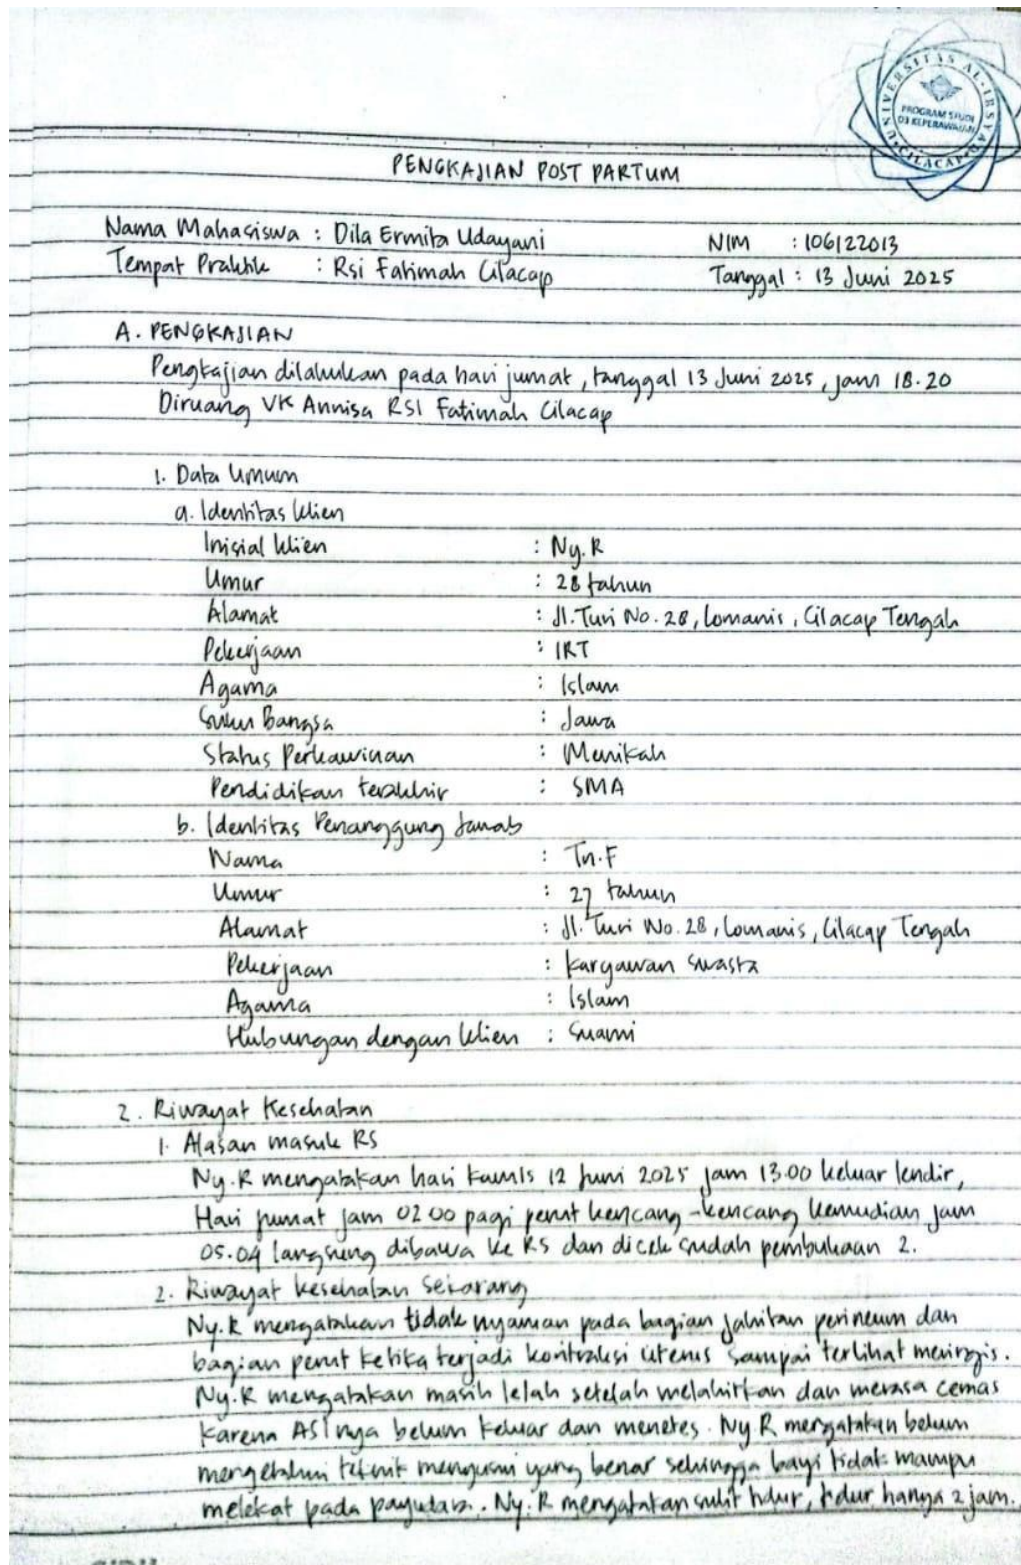 UNIVERSITAS AL-IRSYAD CILACAP
PROGRAM STUDI
D3 KEPERAWATAN
PENGKAJIAN POST PARTUM
Nama Mahasiswa : Dila Ermita Udayani NIM : 106122013
Tempat Praktik : Rsi Fatimah Cilacap Tanggal : 13 Juni 2025
A. PENGKAJIAN
Pengkajian dilakukan pada hari jumat, tanggal 13 Juni 2025, jam 18.20
Diruang VK Annisa RSI Fatimah Cilacap
1. Data Umum
a. Identitas klien
Inisial klien : Ny. R
Umur : 28 tahun
Alamat : Jl. Turi No. 28, Lomanis, Cilacap Tengah
Pekerjaan : IRT
Agama : Islam
Suku Bangsa : Jawa
Status Perkawinan : Menikah
Pendidikan terakhir : SMA
b. Identitas Penanggung Jawab
Nama : Tn. F
Umur : 27 tahun
Alamat : Jl. Turi No. 28, Lomanis, Cilacap Tengah
Pekerjaan : Karyawan swasta
Agama : Islam
Hubungan dengan klien : Suami
2. Riwayat Kesehatan
1. Alasan masuk RS
Ny. R mengatakan hari Kamis 12 Juni 2025 jam 13.00 keluar lendir,
Hari jumat jam 02 00 pagi perut kencang-kencang kemudian jam
05.04 langsung dibawa ke RS dan dicek sudah pembukaan 2.
2. Riwayat kesehatan sekarang
Ny. R mengatakan tidak nyaman pada bagian jahitan perineum dan
bagian perut ketika terjadi kontraksi uterus sampai terlihat meringis.
Ny. R mengatakan masih lelah setelah melahirkan dan merasa cemas
karena ASI nya belum keluar dan menetes. Ny R mengatakan belum
mengetahui teknik menyusui yang benar sehingga bayi tidak mampu
melekat pada payudara. Ny. R mengatakan sulit tidur, tidur hanya 2 jam.